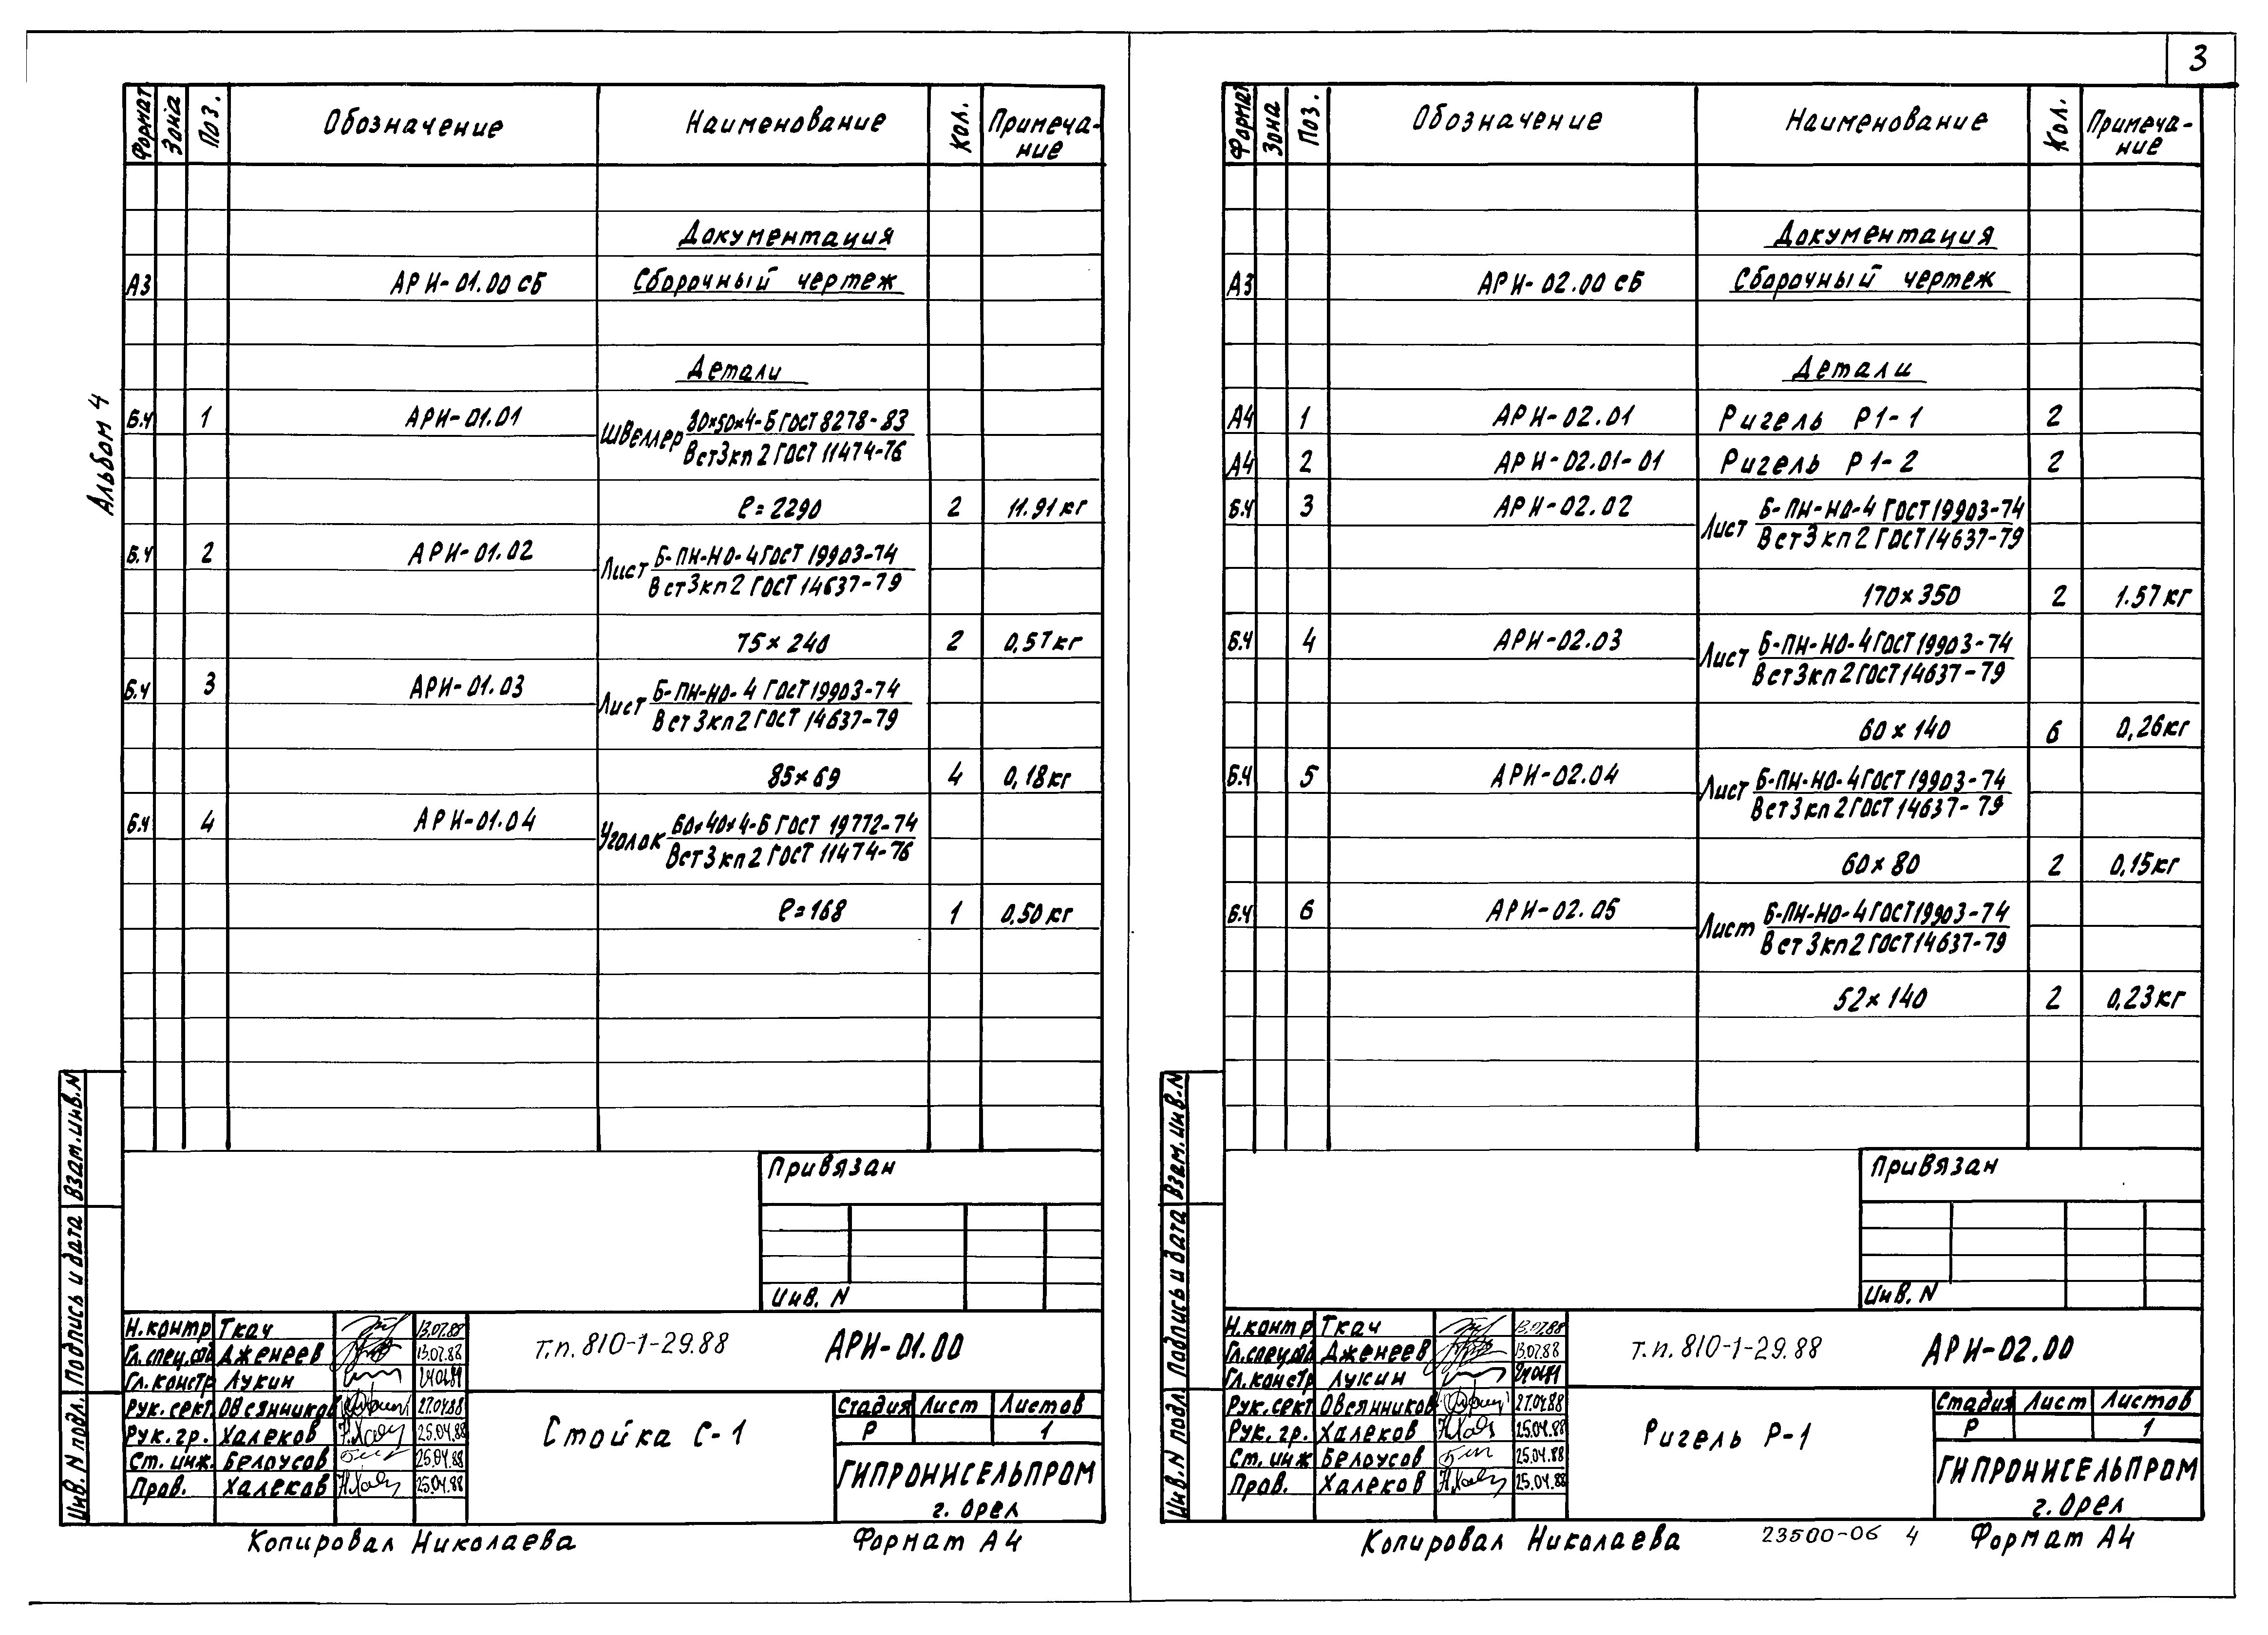 3
Альбом 4
Формат Зона Поз. Обозначение Наименование Кол. Примеча-
ние
Документация
А3 АРИ-01.00 СБ Сборочный чертеж
Детали
Б.Ч 1 АРИ-01.01 Швеллер 80×50×4-Б ГОСТ 8278-83
ВСт3кп2 ГОСТ 11474-76
ℓ=2290 2 11.91 кг
Б.Ч 2 АРИ-01.02 Лист Б-ПН-НО-4 ГОСТ 19903-74
ВСт3кп2 ГОСТ 14637-79
75×240 2 0,57 кг
Б.Ч 3 АРИ-01.03 Лист Б-ПН-НО-4 ГОСТ 19903-74
ВСт3кп2 ГОСТ 14637-79
85×69 4 0,18 кг
Б.Ч 4 АРИ-01.04 Уголок 60×40×4-Б ГОСТ 19772-74
ВСт3кп2 ГОСТ 11474-76
ℓ=168 1 0,50 кг
Привязан
Инв. N
Взам. инв. N
Подпись и дата
Инв. N подл.
Н.контр Ткач 13.07.88
Гл.спец. Дженеев 13.07.88
Гл.констр Лукин
Рук. сект. Овсянников 27.04.88
Рук. гр. Халеков 25.04.88
Ст. инж. Белоусов 25.04.88
Пров. Халеков 25.04.88
т.п. 810-1-29.88 АРИ-01.00
Стойка С-1
Стадия Лист Листов
Р 1
ГИПРОНИСЕЛЬПРОМ
г. Орел
Копировал Николаева Формат А4
Формат Зона Поз. Обозначение Наименование Кол. Примеча-
ние
Документация
А3 АРИ-02.00 СБ Сборочный чертеж
Детали
А4 1 АРИ-02.01 Ригель Р1-1 2
А4 2 АРИ-02.01-01 Ригель Р1-2 2
Б.Ч 3 АРИ-02.02 Лист Б-ПН-НО-4 ГОСТ 19903-74
ВСт3кп2 ГОСТ 14637-79
170×350 2 1.57 кг
Б.Ч 4 АРИ-02.03 Лист Б-ПН-НО-4 ГОСТ 19903-74
ВСт3кп2 ГОСТ 14637-79
60×140 6 0,26 кг
Б.Ч 5 АРИ-02.04 Лист Б-ПН-НО-4 ГОСТ 19903-74
ВСт3кп2 ГОСТ 14637-79
60×80 2 0,15 кг
Б.Ч 6 АРИ-02.05 Лист Б-ПН-НО-4 ГОСТ 19903-74
ВСт3кп2 ГОСТ 14637-79
52×140 2 0,23 кг
Привязан
Инв. N
Взам. инв. N
Подпись и дата
Инв. N подл.
Н.контр Ткач 13.07.88
Гл.спец. Дженеев 13.07.88
Гл.констр Лукин
Рук. сект Овсянников 27.04.88
Рук. гр. Халеков 25.04.88
Ст. инж Белоусов 25.04.88
Пров. Халеков 25.04.88
т.п. 810-1-29.88 АРИ-02.00
Ригель Р-1
Стадия Лист Листов
Р 1
ГИПРОНИСЕЛЬПРОМ
г. Орел
Копировал Николаева 23500-06 4 Формат А4